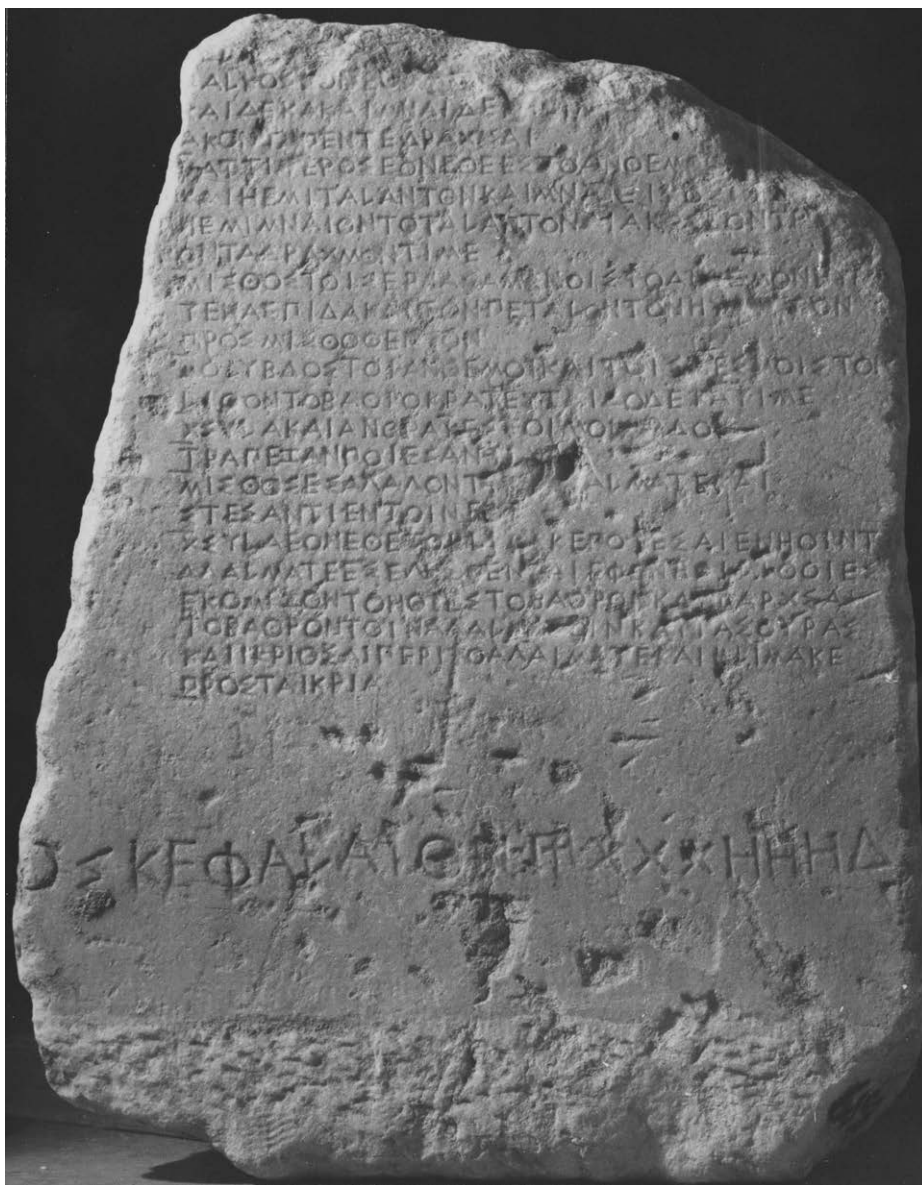 ΑΚΟΝΤΑ ΠΕΝΤΕ ΔΡΑΧΜΑΙ
ΚΑΤΤΙΤΕΡΟΣ ΕΟΝΕΘΕ ΕΣ ΤΟ ΑΝΘΕΜΟ
ΚΑΙ ΗΕΜΙΤΑΛΑΝΤΟΝ ΚΑΙ ΜΝΑΙ ΕΙΚΟ
ΗΕΜΙΜΝΑΙΟΝ ΤΟ ΤΑΛΑΝΤΟΝ ΔΙΑΚΟΣΙΟΝ ΤΡΙ
ΟΝΤΑ ΔΡΑΧΜΟΝ ΤΙΜΕ
ΜΙΣΘΟΣ ΤΟΙΣ ΕΡΓΑΣΑΜΕΝΟΙΣ ΤΟ ΑΝΘΕΜΟΝ ΗΥΠΟ
ΤΕΝ ΑΣΠΙΔΑ ΚΑΙ ΤΟΝ ΠΕΤΑΛΟΝ ΤΟΝ ΗΥΣΤΕΡΟΝ
ΠΡΟΣΜΙΣΘΟΘΕΝΤΟΝ
ΜΟΛΥΒΔΟΣ ΤΟΙ ΑΝΘΕΜΟΙ ΚΑΙ ΤΟΙΣ ΔΕΣΜΟΙΣ ΤΟΝ
ΛΙΘΟΝ ΤΟ ΒΑΘΡΟ ΚΡΑΤΕΥΤΑΙ ΔΟΔΕΚΑ ΤΙΜΕ
ΧΣΥΛΑ ΚΑΙ ΑΝΘΡΑΚΕΣ ΤΟΙ ΜΟΛΥΒΔΟΙ
ΤΡΑΠΕΖΑΝ ΠΟΙΕΣΑΝΤΙ
ΜΙΣΘΟΣ ΕΣΑΓΑΓΟΝΤΙ ΤΟ ΑΓΑΛΜΑΤΕ ΚΑΙ
ΣΤΕΣΑΝΤΙ ΕΝ ΤΟΙ ΝΕΟΙ
ΧΣΥΛΑ ΕΟΝΕΘΕ ΤΟ ΚΛΙΜΑΚΕ ΠΟΙΕΣΑΙ ΕΝ ΗΟΙΝ Τ
ΑΓΑΛΜΑΤΕ ΕΣΕΓΕΣΘΕΝ ΚΑΙ ΕΦ ΟΝ ΗΟΙ ΛΙΘΟΙ ΕΣ
ΕΚΟΜΙΖΟΝΤΟ ΗΟΙ ΕΣ ΤΟ ΒΑΘΡΟΝ ΚΑΙ ΦΑΡΧΣΑΙ
ΤΟ ΒΑΘΡΟΝ ΤΟΙΝ ΑΓΑΛΜΑΤΟΙΝ ΚΑΙ ΤΑΣ ΘΥΡΑΣ
ΚΑΙ ΙΚΡΙΟΣΑΙ ΠΕΡΙ ΤΟ ΑΓΑΛΜΑΤΕ ΚΑΙ ΚΛΙΜΑΚΕ
ΠΡΟΣ ΤΑ ΙΚΡΙΑ
ΟΣ ΚΕΦΑΛΑΙΟΝ ΧΧΧΗΗΗΔ